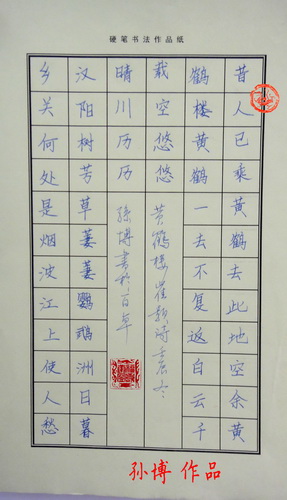 硬笔书法作品纸
昔人已乘黄鹤去此地空余黄
鹤楼黄鹤一去不复返白云千
载空悠悠
黄鹤楼崔颢诗壬辰冬
晴川历历
孫博書於百草
汉阳树芳草萋萋鹦鹉洲日暮
乡关何处是烟波江上使人愁
孙博 作品